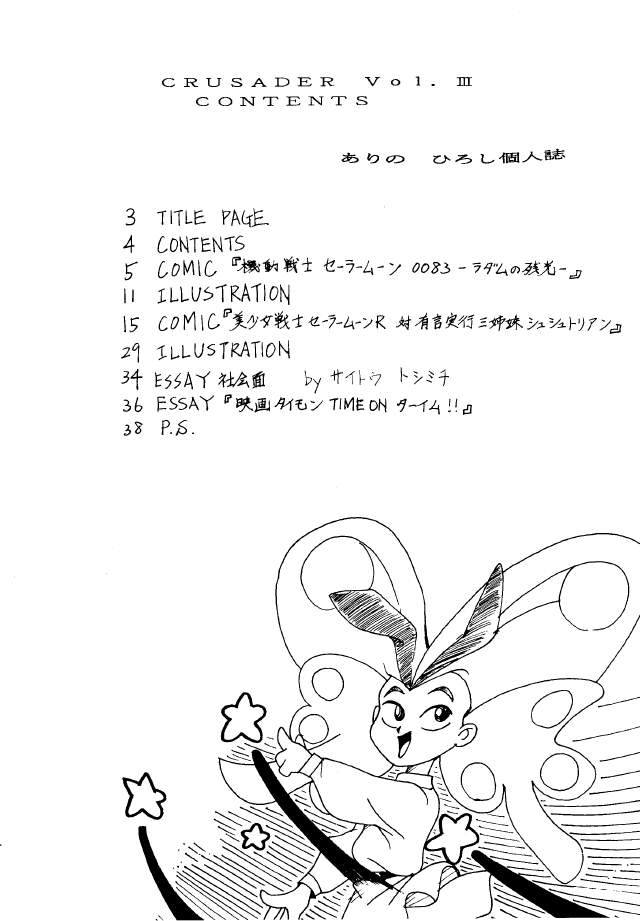 CRUSADER Vol. Ⅲ
CONTENTS
ありの ひろし個人誌
3 TITLE PAGE
4 CONTENTS
5 COMIC『機動戦士セーラームーン 0083-ラダムの残光-』
11 ILLUSTRATION
15 COMIC『美少女戦士セーラームーンR 対 有言実行三姉妹シュシュトリアン』
29 ILLUSTRATION
34 ESSAY 社会面 by サイトウ トシミチ
36 ESSAY『映画ダイモン TIME ON ターイム!!』
38 P.S.